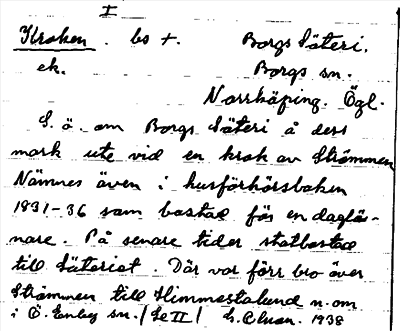 I
Kroken . bs +. Borgs Säteri.
ek. Borgs sn.
Norrköping. Ögl.
S. ö. om Borgs Säteri å dess
mark ute vid en krok av Strömmen
Nämnes även i husförhörsboken
1831-36 som bostad för en daglö-
nare. På senare tider statbostad
till Säteriet. Där var förr bro över
Strömmen till Himmelstalund n. om
i Ö. Eneby sn. / Se II /
1938